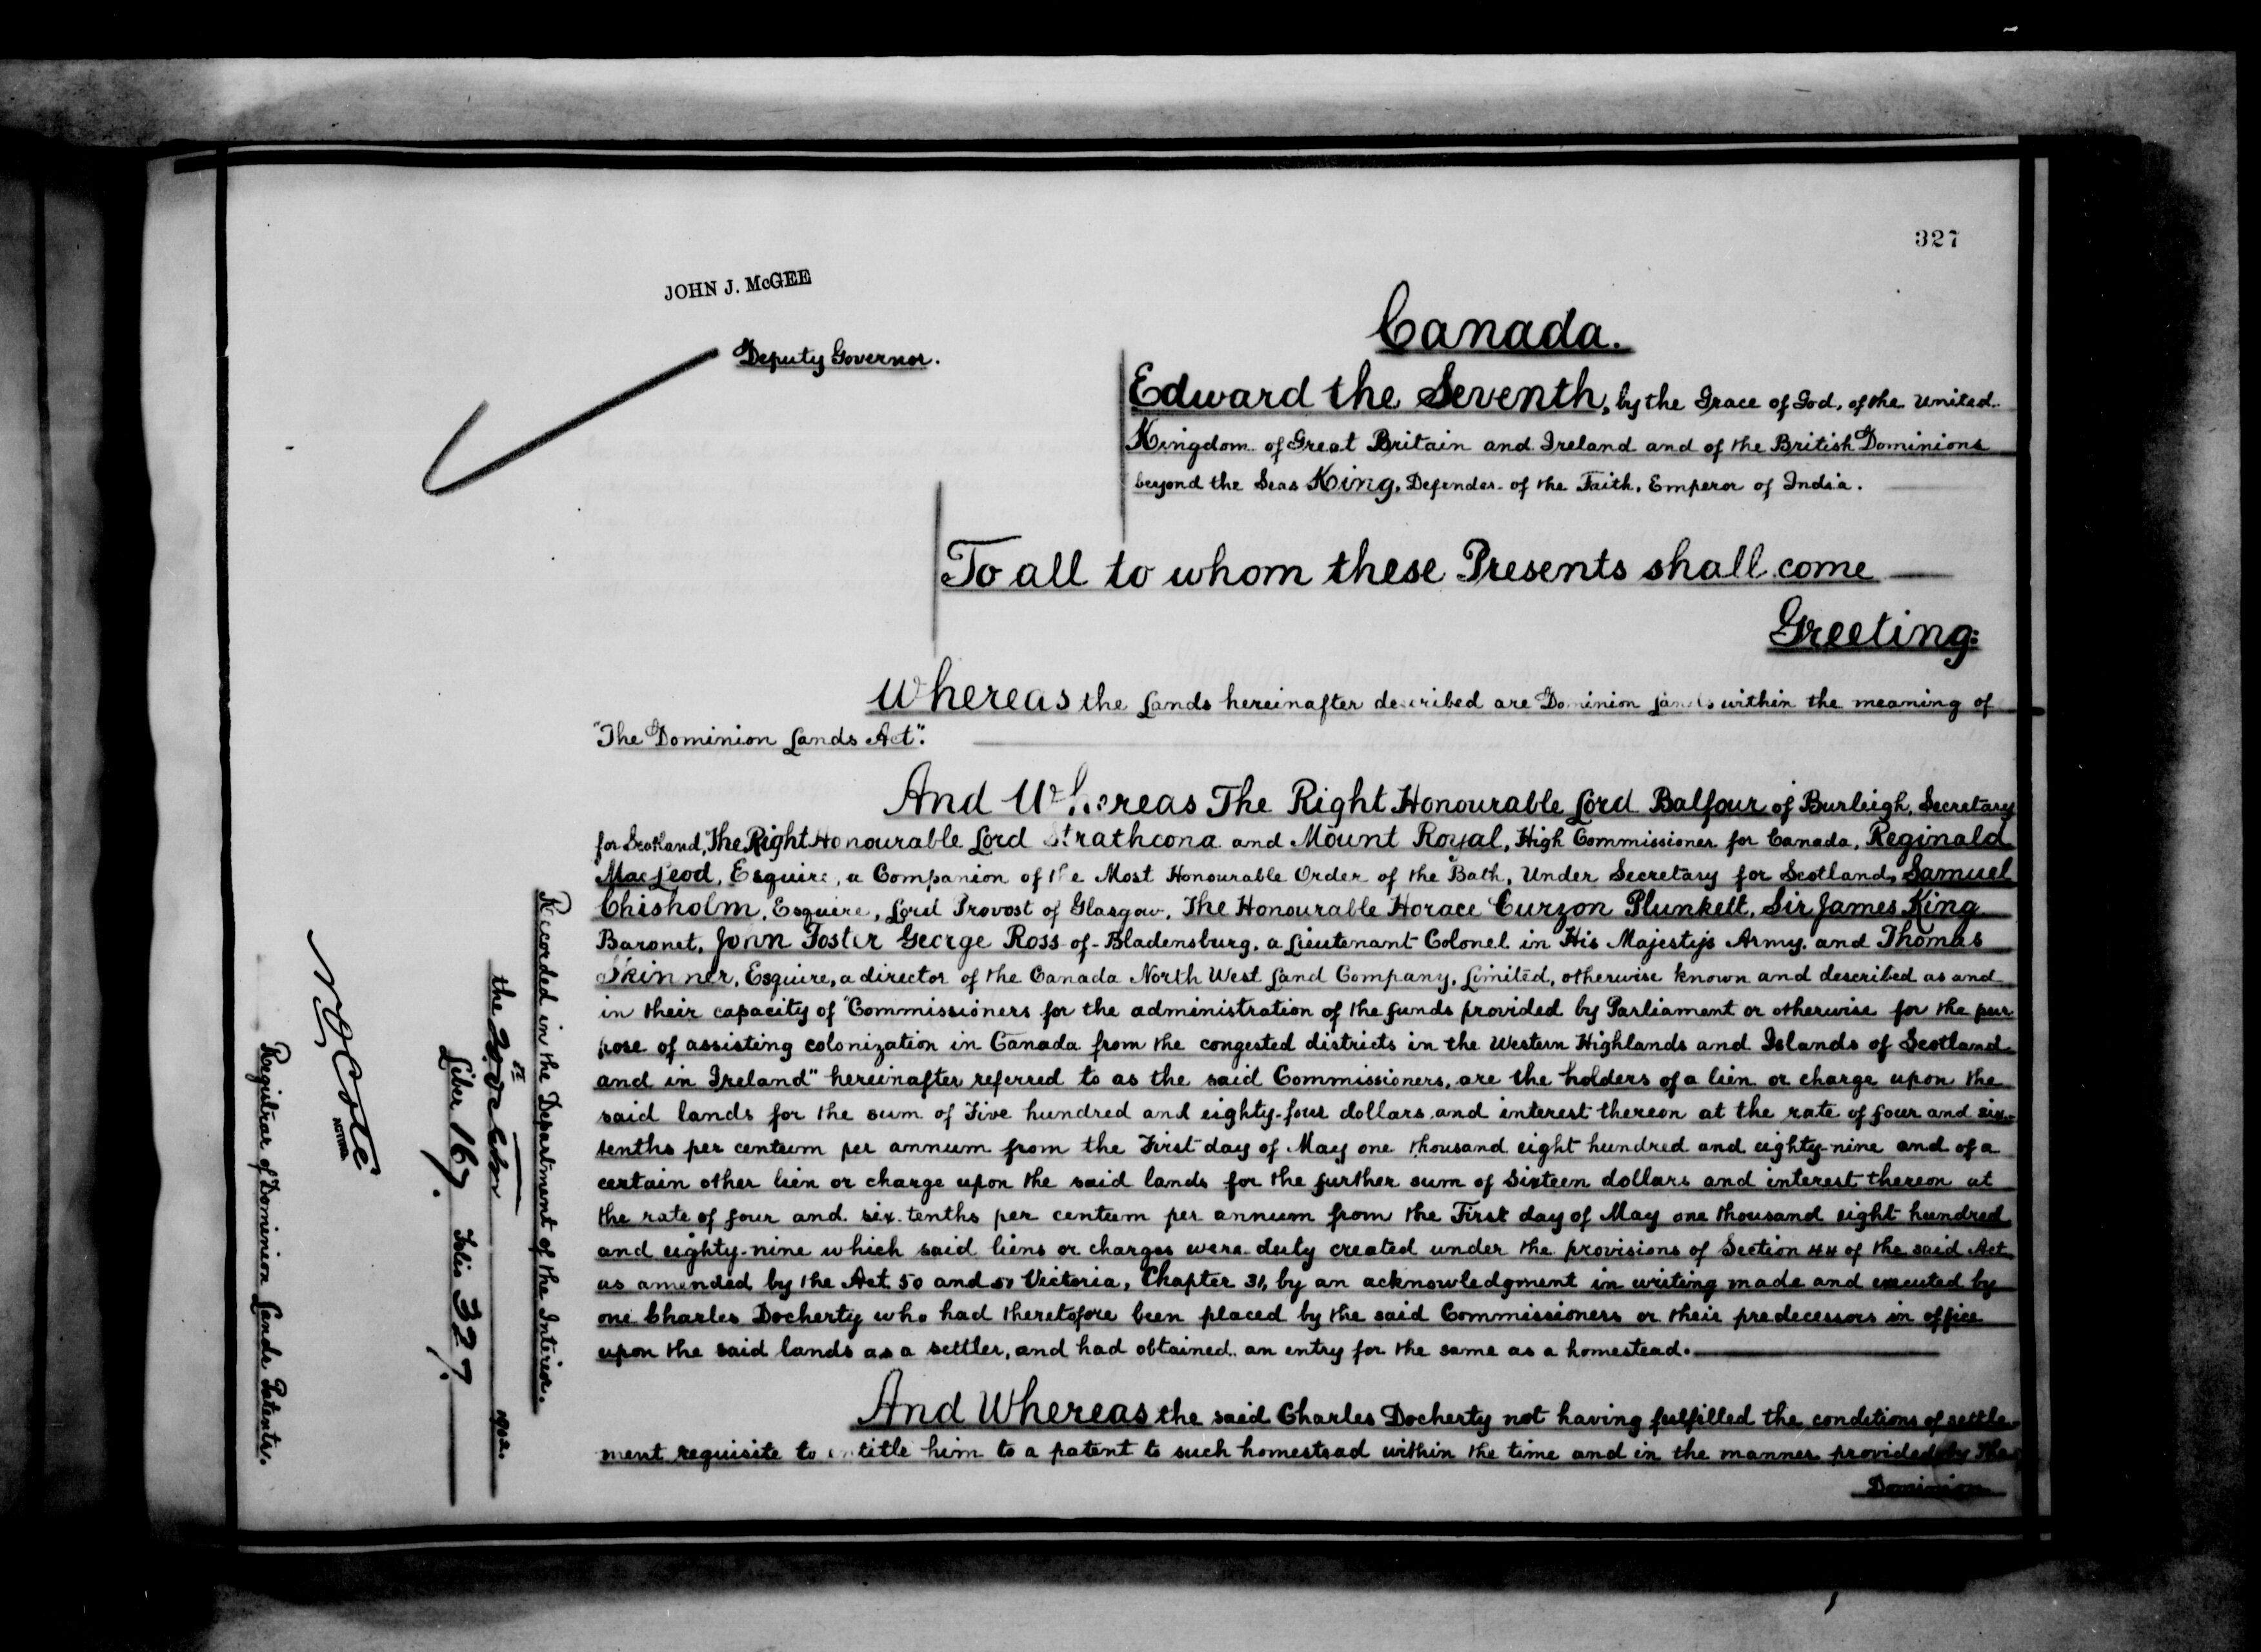 327
JOHN J. McGEE
Deputy Governor.
Canada.
Edward the Seventh, by the Grace of God, of the United
Kingdom of Great Britain and Ireland and of the British Dominions
beyond the Seas King, Defender of the Faith, Emperor of India.
To all to whom these Presents shall come
Greeting:
Whereas the Lands hereinafter described are Dominion Lands within the meaning of
"The Dominion Lands Act".
And Whereas The Right Honourable Lord Balfour of Burleigh, Secretary
for Scotland, The Right Honourable Lord Strathcona and Mount Royal, High Commissioner for Canada, Reginald
MacLeod, Esquire, a Companion of the Most Honourable Order of the Bath, Under Secretary for Scotland, Samuel
Chisholm, Esquire, Lord Provost of Glasgow, The Honourable Horace Curzon Plunkett, Sir James King
Baronet, John Foster George Ross-of-Bladensburg, a Lieutenant Colonel in His Majesty's Army, and Thomas
Skinner, Esquire, a director of the Canada North West Land Company, Limited, otherwise known and described as and
in their capacity of "Commissioners for the administration of the funds provided by Parliament or otherwise for the pur
pose of assisting colonization in Canada from the congested districts in the Western Highlands and Islands of Scotland
and in Ireland" hereinafter referred to as the said Commissioners, are the holders of a lien or charge upon the
said lands for the sum of Five hundred and eighty-four dollars and interest thereon at the rate of four and six-
tenths per centum per annum from the First day of May one thousand eight hundred and eighty-nine and of a
certain other lien or charge upon the said lands for the further sum of Sixteen dollars and interest thereon at
the rate of four and six-tenths per centum per annum from the First day of May one thousand eight hundred
and eighty-nine which said liens or charges were duly created under the provisions of Section 44 of the said Act
as amended by the Act 50 and 51 Victoria, Chapter 31, by an acknowledgment in writing made and executed by
one Charles Docherty who had theretofore been placed by the said Commissioners or their predecessors in office
upon the said lands as a settler, and had obtained an entry for the same as a homestead.
And Whereas the said Charles Docherty not having fulfilled the conditions of settle-
ment requisite to entitle him to a patent to such homestead within the time and in the manner provided by The
Dominion
Recorded in the Department of the Interior.
the October 1902.
Liber 167. Folio 327.
N. O. Coté
ACTING
Registrar of Dominion Lands Patents.